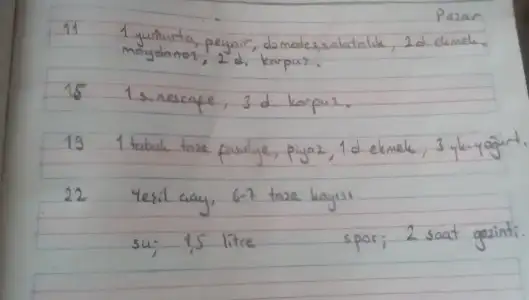 Pazar
11 1 yumurta, peynir, domates, salatalık, 2 d. ekmek,
maydanoz, 2 d. karpuz.
15 1 s. nescafe, 3 d karpuz.
19 1 tabak taze fasulye, piyaz, 1 d ekmek, 3 yk yoğurt.
22 Yeşil çay, 6-7 taze kayısı
su; 1,5 litre spor; 2 saat gezinti.